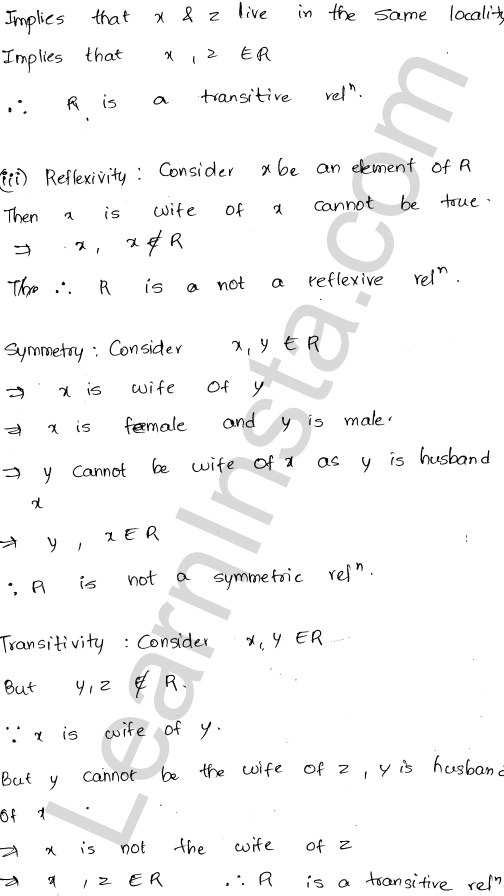 Implies that x & z live in the same locality
Implies that x , z ∈R
∴ R is a transitive relⁿ.
(iii) Reflexivity : Consider x be an element of R
Then x is wife of x cannot be true.
⇒ x, x ∉ R
The ∴ R is a not a reflexive relⁿ.
Symmetry : Consider x, y ∈ R
⇒ x is wife of y
⇒ x is female and y is male.
⇒ y cannot be wife of x as y is husband
x
⇒ y , x ∈ R
∴ R is not a symmetric relⁿ.
Transitivity : Consider x, y ∈R
But y, z ∉ R.
∵ x is wife of y.
But y cannot be the wife of z , y is husband
of x
⇒ x is not the wife of z
⇒ x , z ∈ R ∴ R is a transitive relⁿ
LearnInsta.com